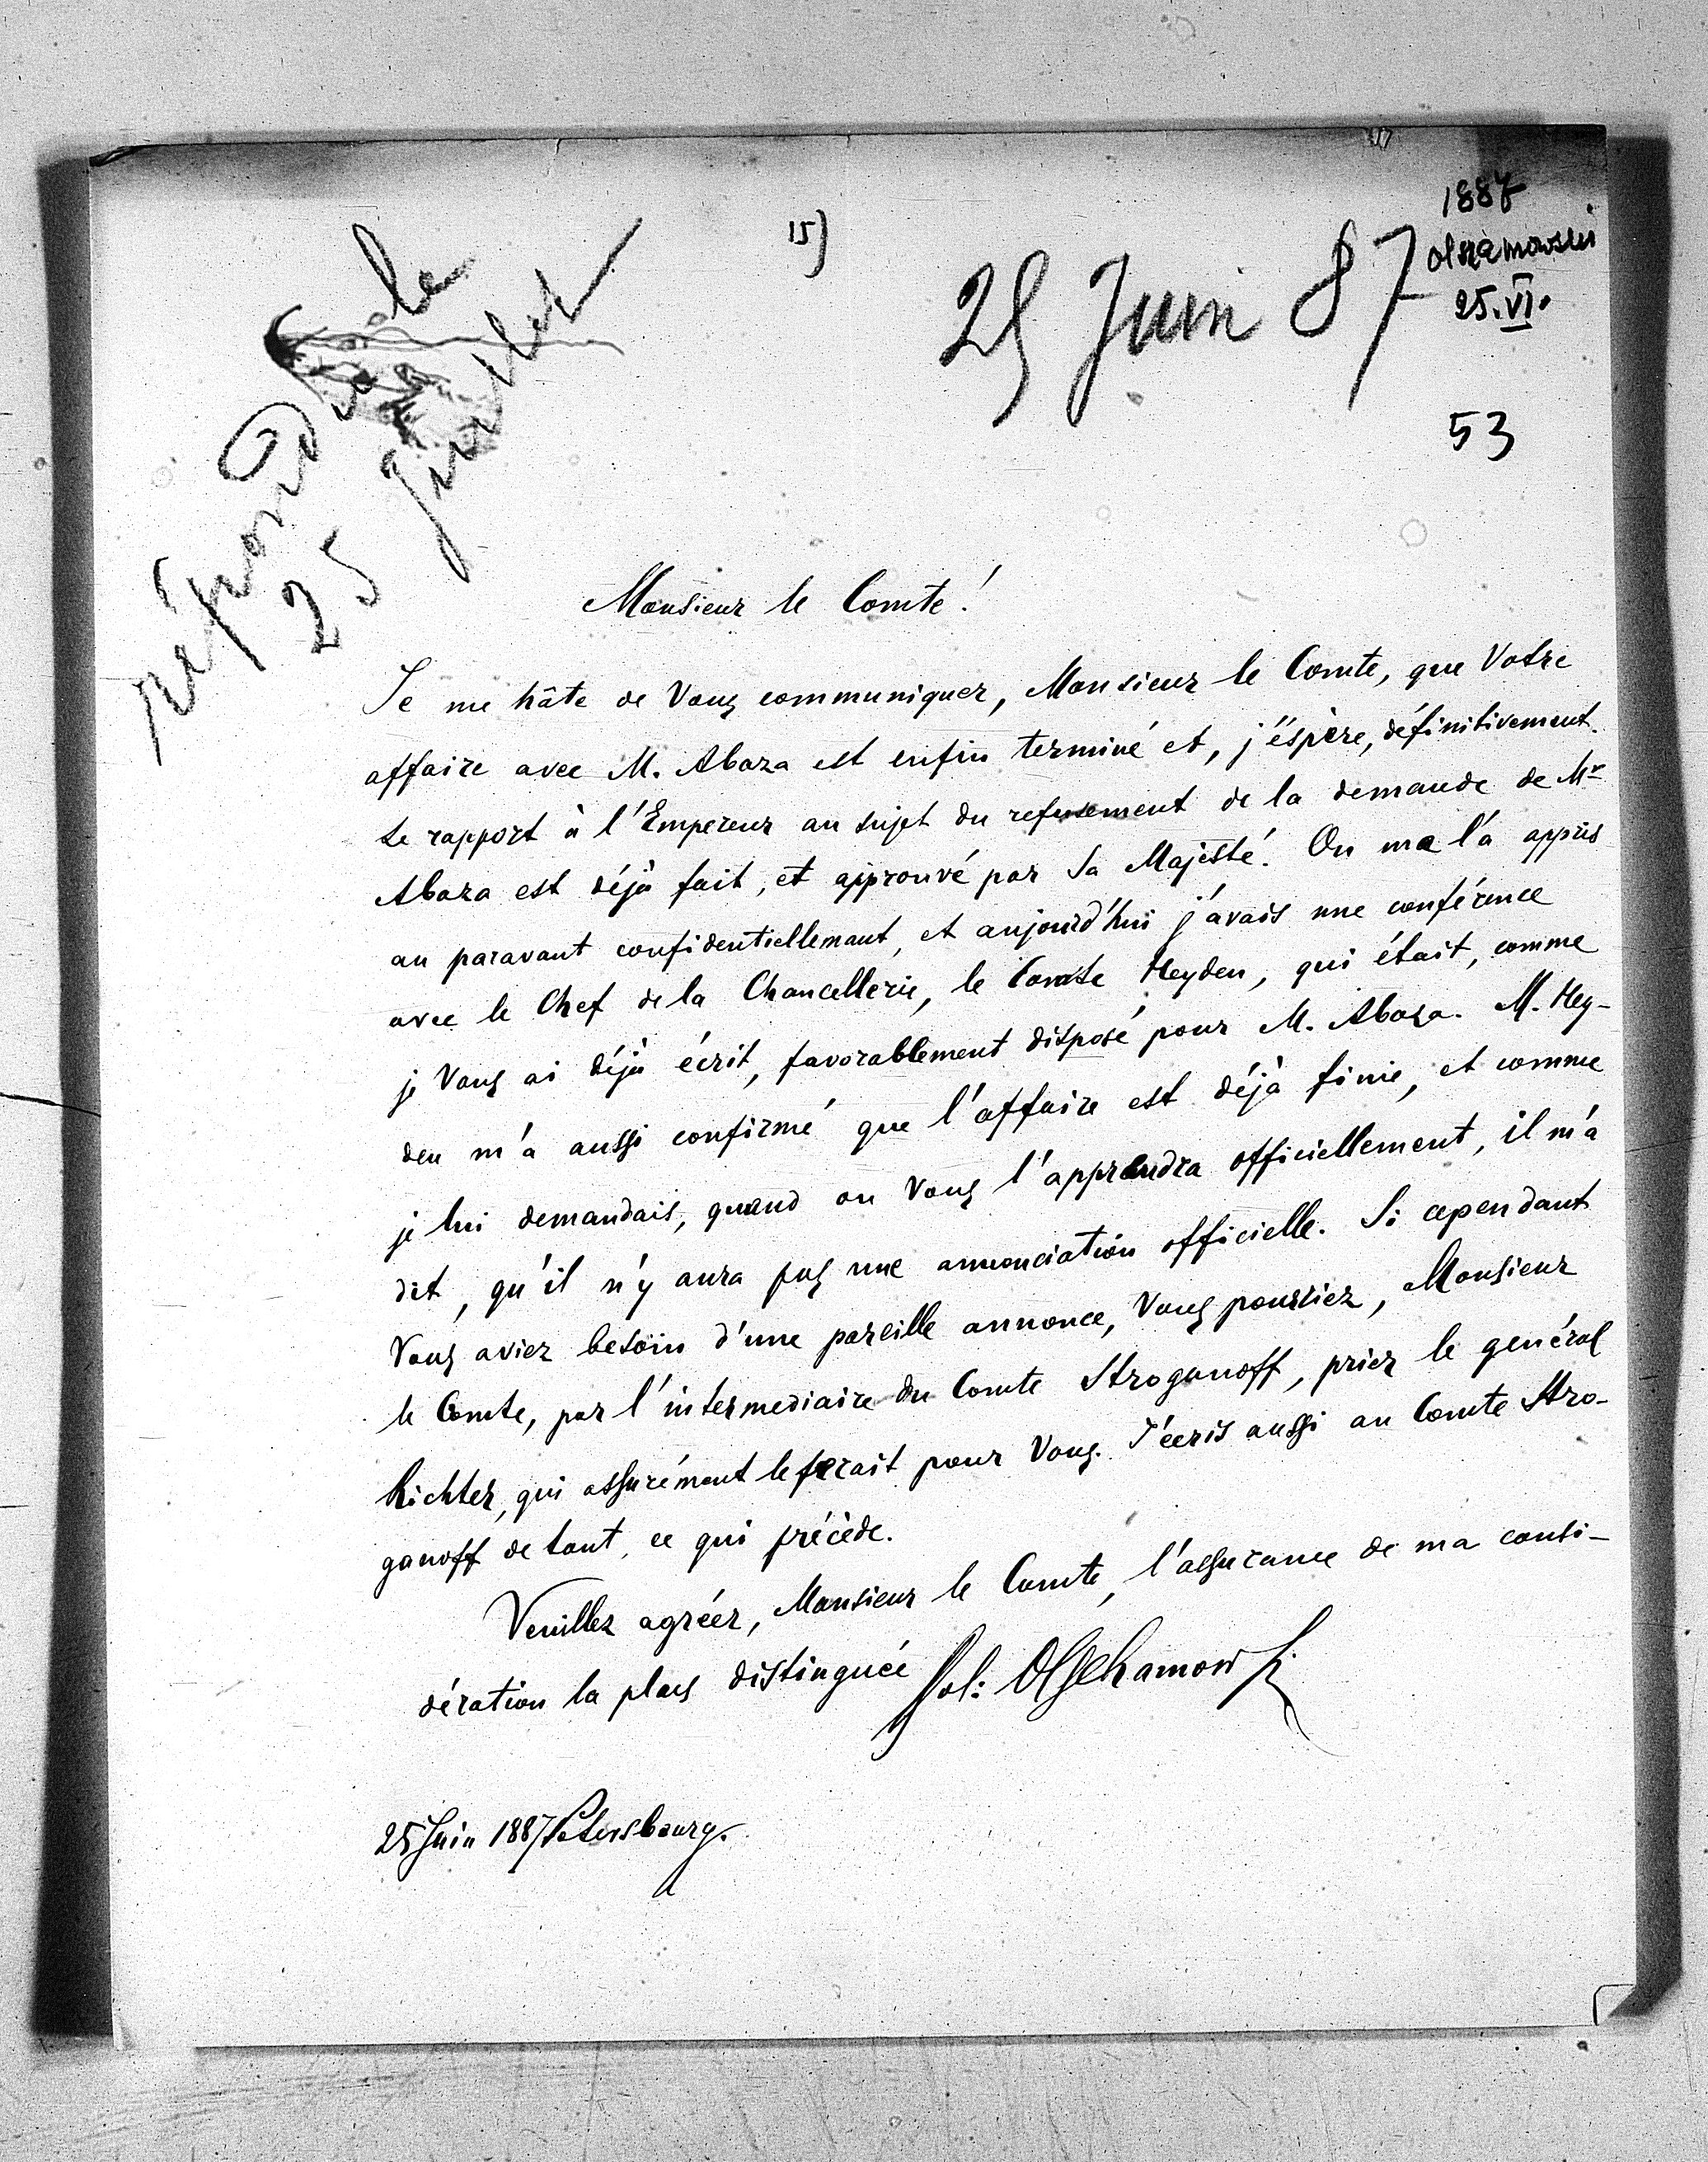 15)
1887
Olszamowski
25.VI.
25 Juin 87
53
répondu le
25 juillet
Monsieur le Comte!
Je me hâte de Vous communiquer, Monsieur le Comte, que Votre
affaire avec M. Abaza est enfin terminé et, j'éspère, définitivement.
Le rapport à l'Empereur au sujet du refusement de la demande de Mr
Abaza est déjà fait, et approuvé par Sa Majesté. On me l'a appris
au paravant confidentiellemant, et aujourd'hui j'avais une conférence
avec le Chef de la Chancellerie, le Comte Heyden, qui était, comme
je Vous ai déjà écrit, favorablement disposé pour M. Abaza. M. Hey-
den m'a aussi confirmé que l'affaire est déjà finie, et comme
je lui demandais, quand on Vous l'apprendra officiellement, il m'a
dit, qu'il n'y aura pas une annonciation officielle. Si cependant
Vous aviez besoin d'une pareille annonce, Vous pourriez, Monsieur
le Comte, par l'intermediaire du Comte Stroganoff, prier le général
Richter, qui assurément le ferait pour Vous. J'écris aussi au Comte Stro-
ganoff de tout, ce qui précède.
Veuillez agréer, Monsieur le Comte, l'assurance de ma consi-
dération la plus distinguée
Olschamowski
25 Juin 1887 Petersbourg.